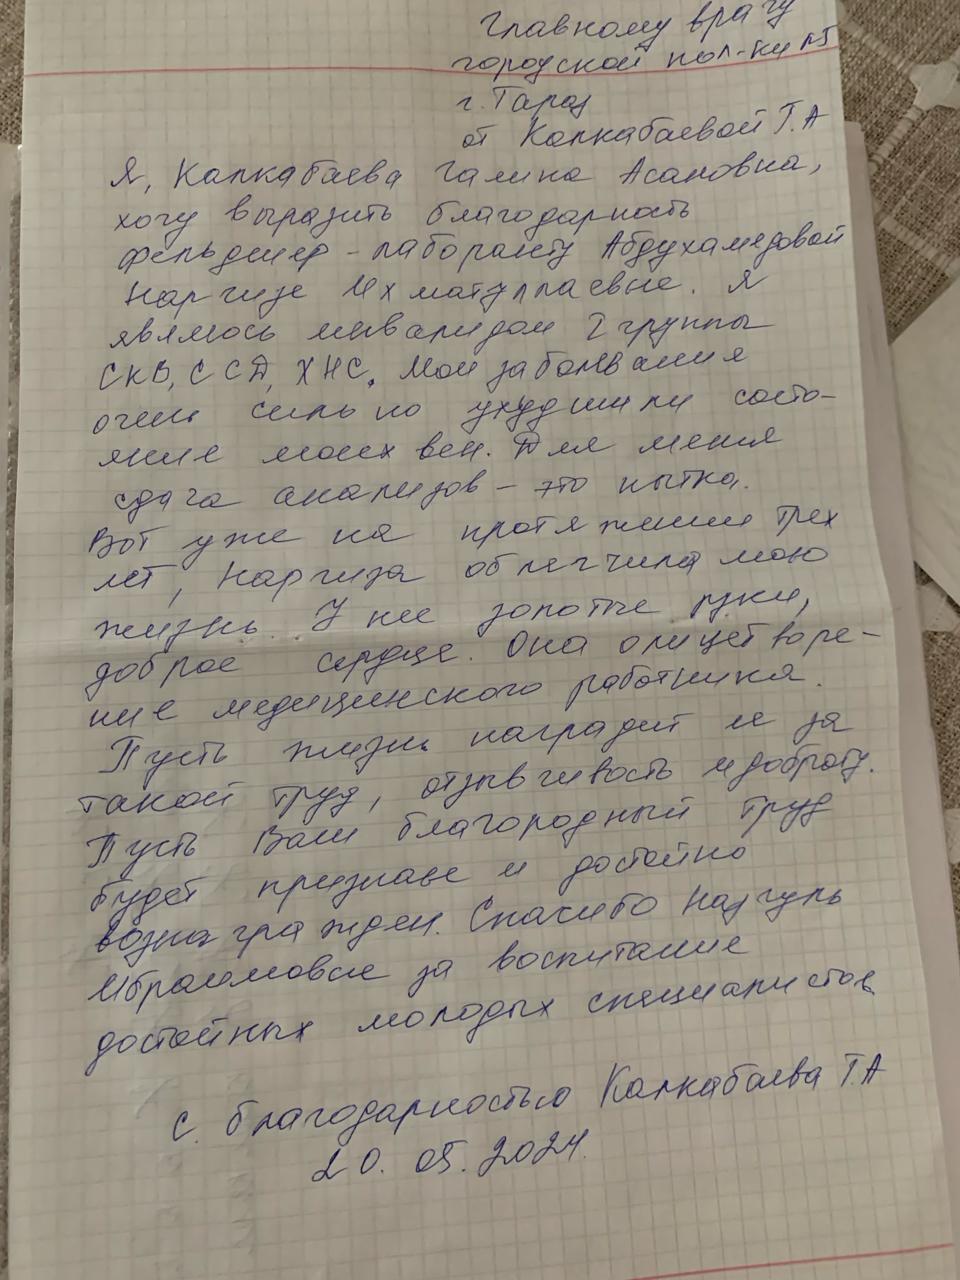 Главному врачу
городской пол-ки №5
г. Тараз
от Калкабаевой Г.А
Я, Калкабаева Галина Асановна,
хочу выразить благодарность
фельдшер-лаборанту Абдухамедовой
Наргизе Ихматуллаевне. Я
являюсь инвалидом 2 группы
СКВ, ССД, ХНС. Мои заболевания
очень сильно ухудшили состо-
яние моих вен. Для меня
сдача анализов - это пытка.
Вот уже на протяжении трех
лет, Наргиза облегчила мою
жизнь. У нее золотые руки,
доброе сердце. Она олицетворе-
ние медицинского работника.
Пусть жизнь наградит ее за
такой труд, отзывчивость и доброту.
Пусть Ваш благородный труд
будет признан и достойно
вознагражден. Спасибо Назгуль
Ибраимовне за воспитание
достойных молодых специалистов
С благодарностью Калкабаева Г.А
20.05.2024.